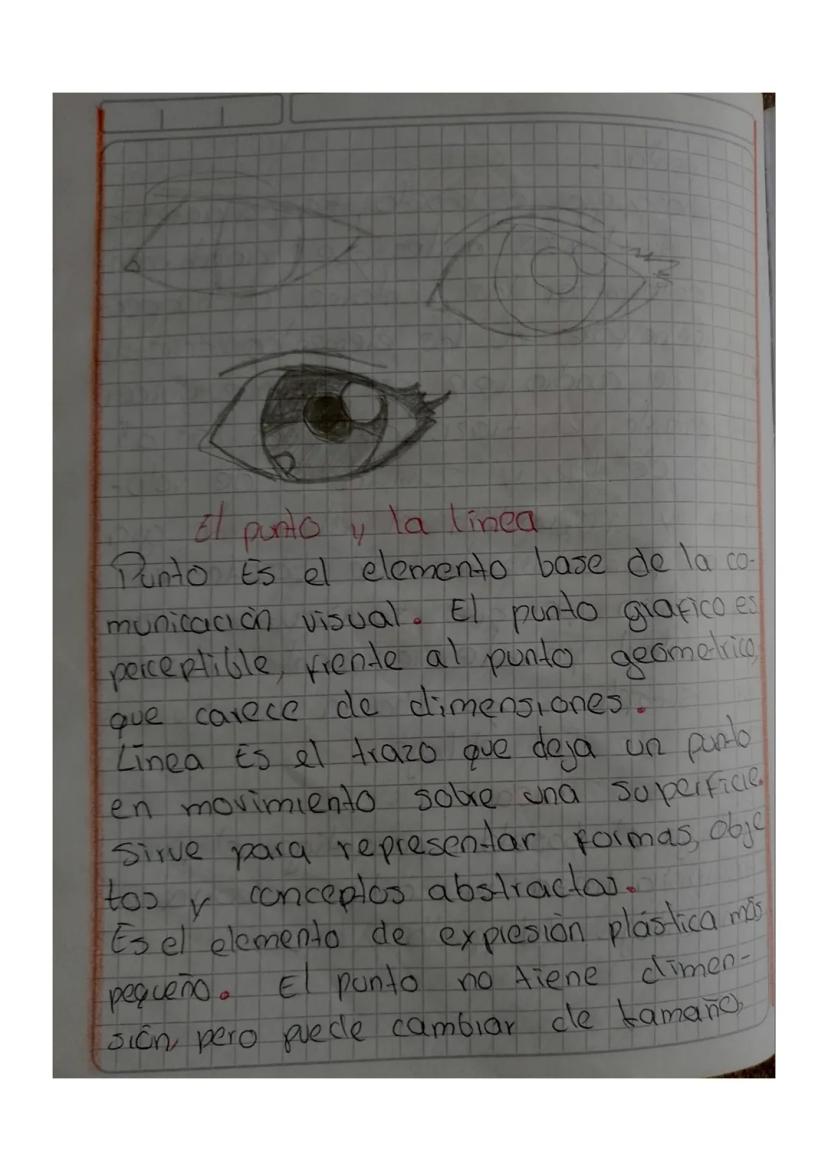 El punto y la línea
Punto Es el elemento base de la co-
municación visual. El punto grafico es
perceptible, frente al punto geometrico,
que carece de dimensiones.
Línea Es el trazo que deja un punto
en movimiento sobre una superficie.
Sirve para representar formas, obje
tos y conceptos abstractos.
Es el elemento de expresión plástica más
pequeño. El punto no tiene dimen-
sión, pero puede cambiar de tamaño,